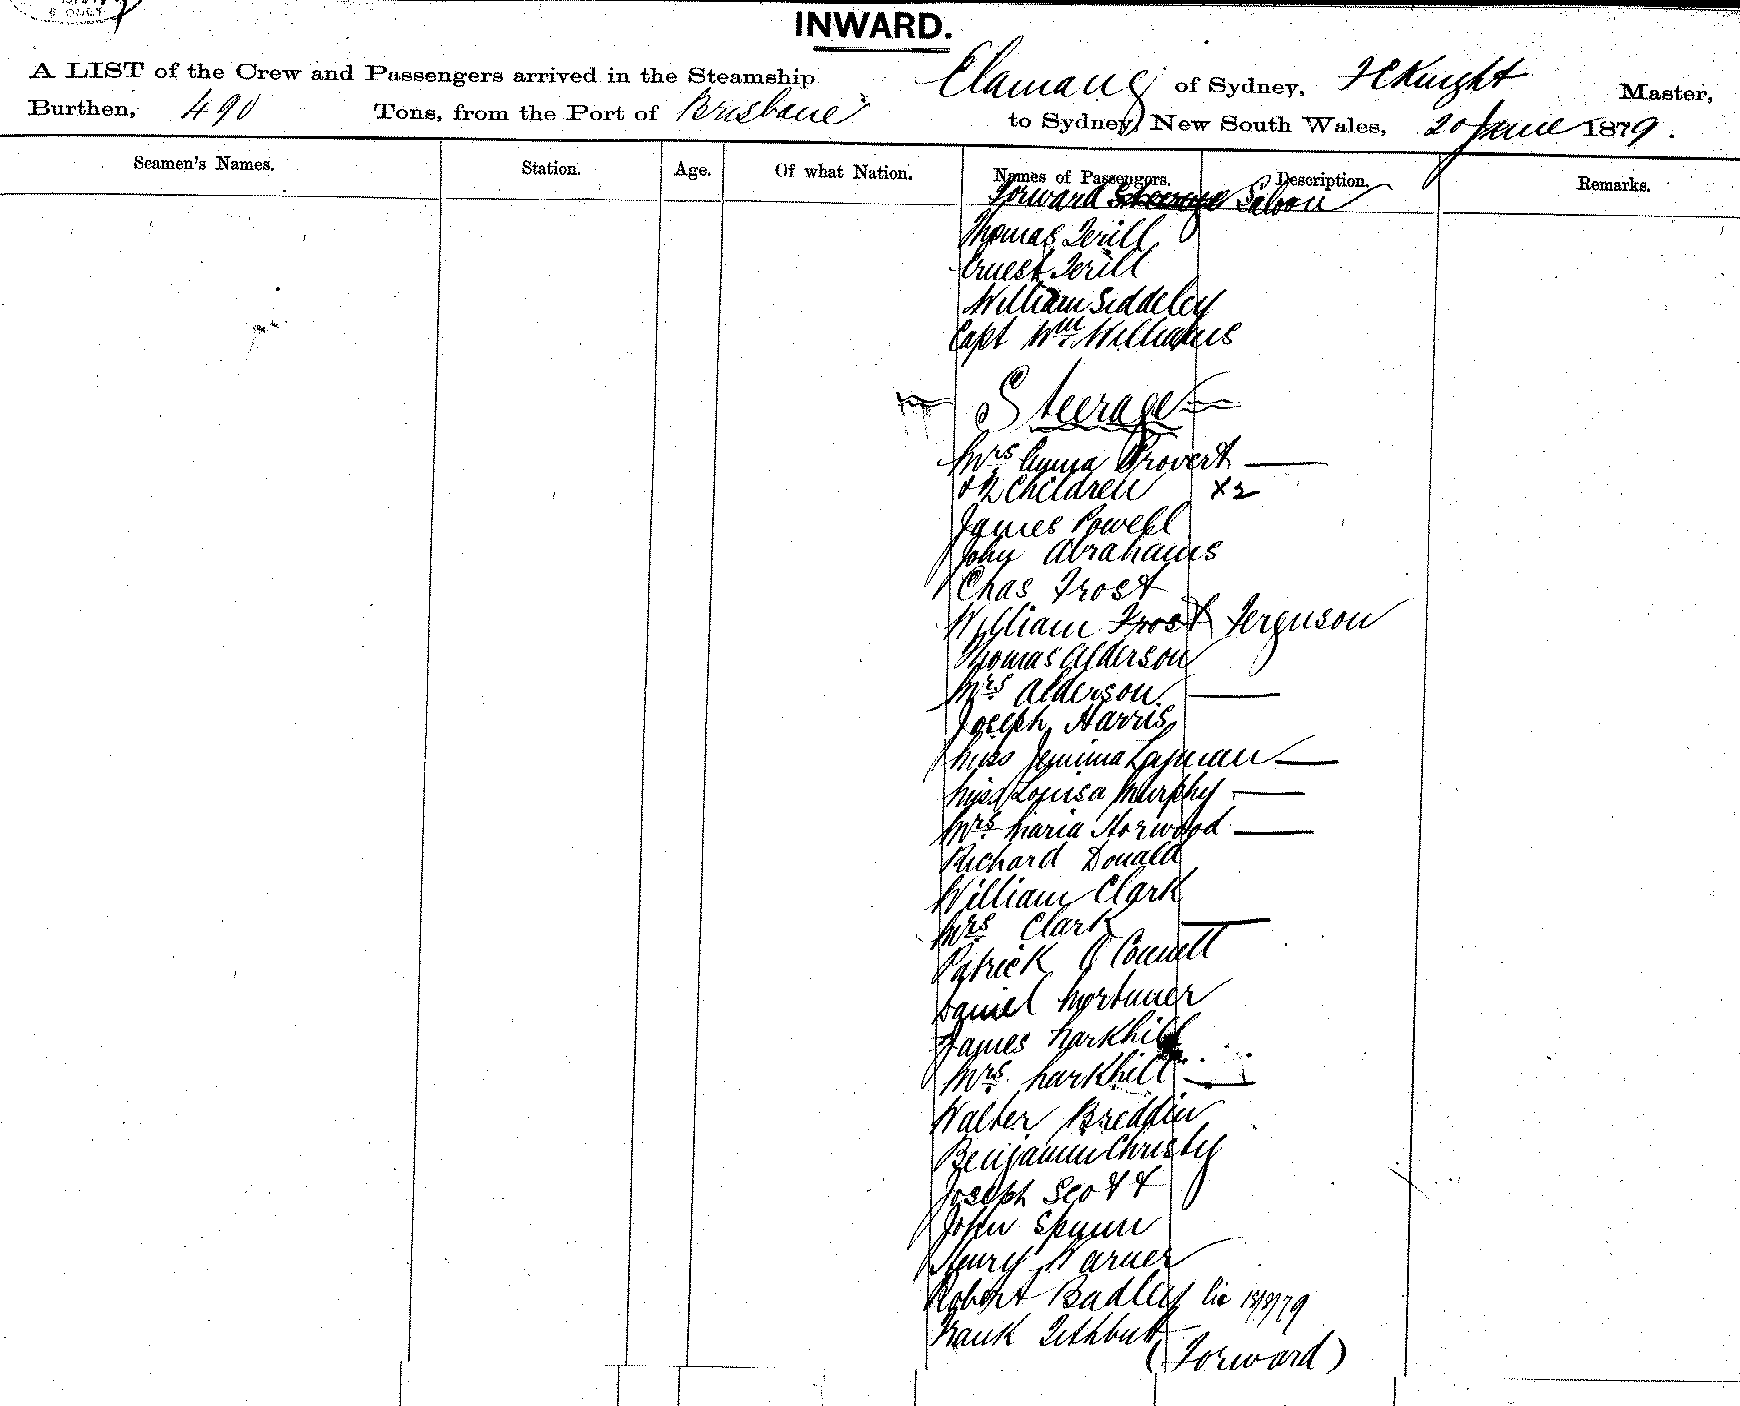 INWARD.
A LIST of the Crew and Passengers arrived in the Steamship Elamang of Sydney, Knight Master,
Burthen, 490 Tons, from the Port of Brisbane to Sydney, New South Wales, 20 June 1879.
Seamen's Names. Station. Age. Of what Nation. Names of Passengers. Description. Remarks.
Forward Steerage Saloon
Thomas Terill
Ernest Terill
William Siddeley
Capt Wm. Williams
Steerage
Mrs Emma Provert
& 2 Children X2
James Powell
John Abrahams
Chas Frost
William Frost Ferguson
Thomas Alderson
Mrs Alderson
Joseph Harris
Miss Jemima Layman
Miss Louisa Murphy
Mrs Maria Norwood
Richard Donald
William Clark
Mrs Clark
Patrick O Connell
Daniel Mortimer
James Markhill
Mrs Markhill
Walter Breddin
Benjamin Christy
Joseph Scott
John Spunn
Henry Warner
Robert Badley
Frank Tithbutt
(Forward)